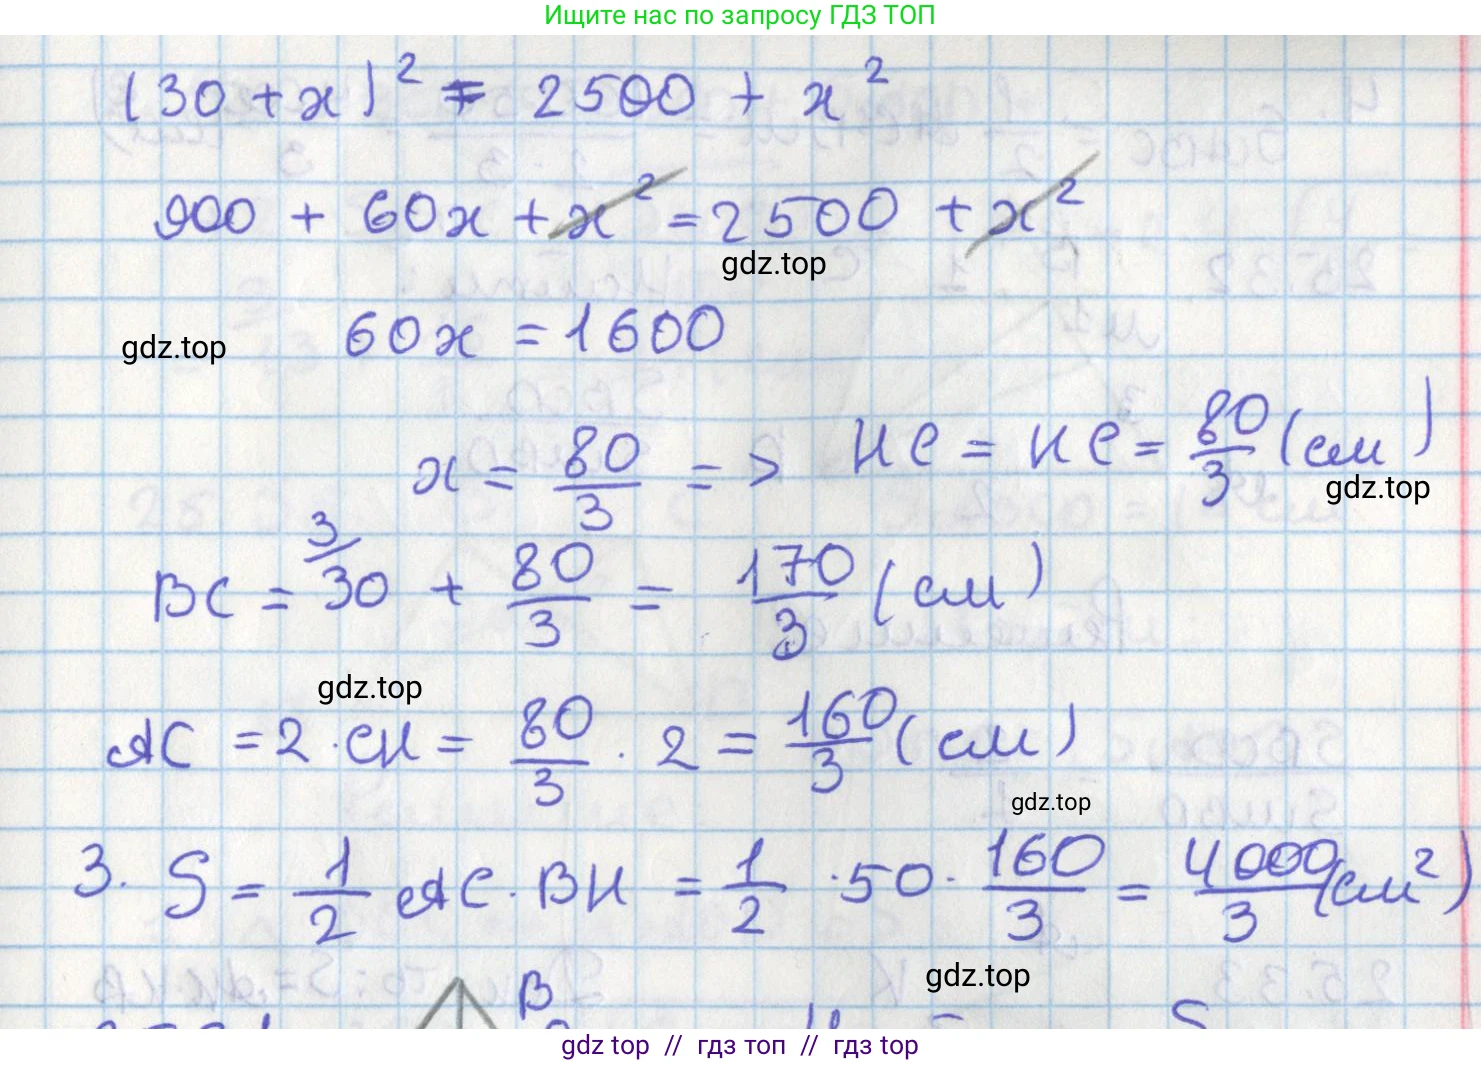 Ищите нас по запросу ГДЗ ТОП
(30 + x)² = 2500 + x²
900 + 60x + x² = 2500 + x²
gdz.top
60x = 1600
gdz.top
x = 80/3 => HC = KC = 80/3 (см)
gdz.top
BC = 3/30 + 80/3 = 170/3 (см)
gdz.top
AC = 2 · CH = 80/3 · 2 = 160/3 (см)
gdz.top
3. S = 1/2 AC · BH = 1/2 · 50 · 160/3 = 4000/3 (см²)
gdz.top
B
gdz top // гдз топ // гдз top